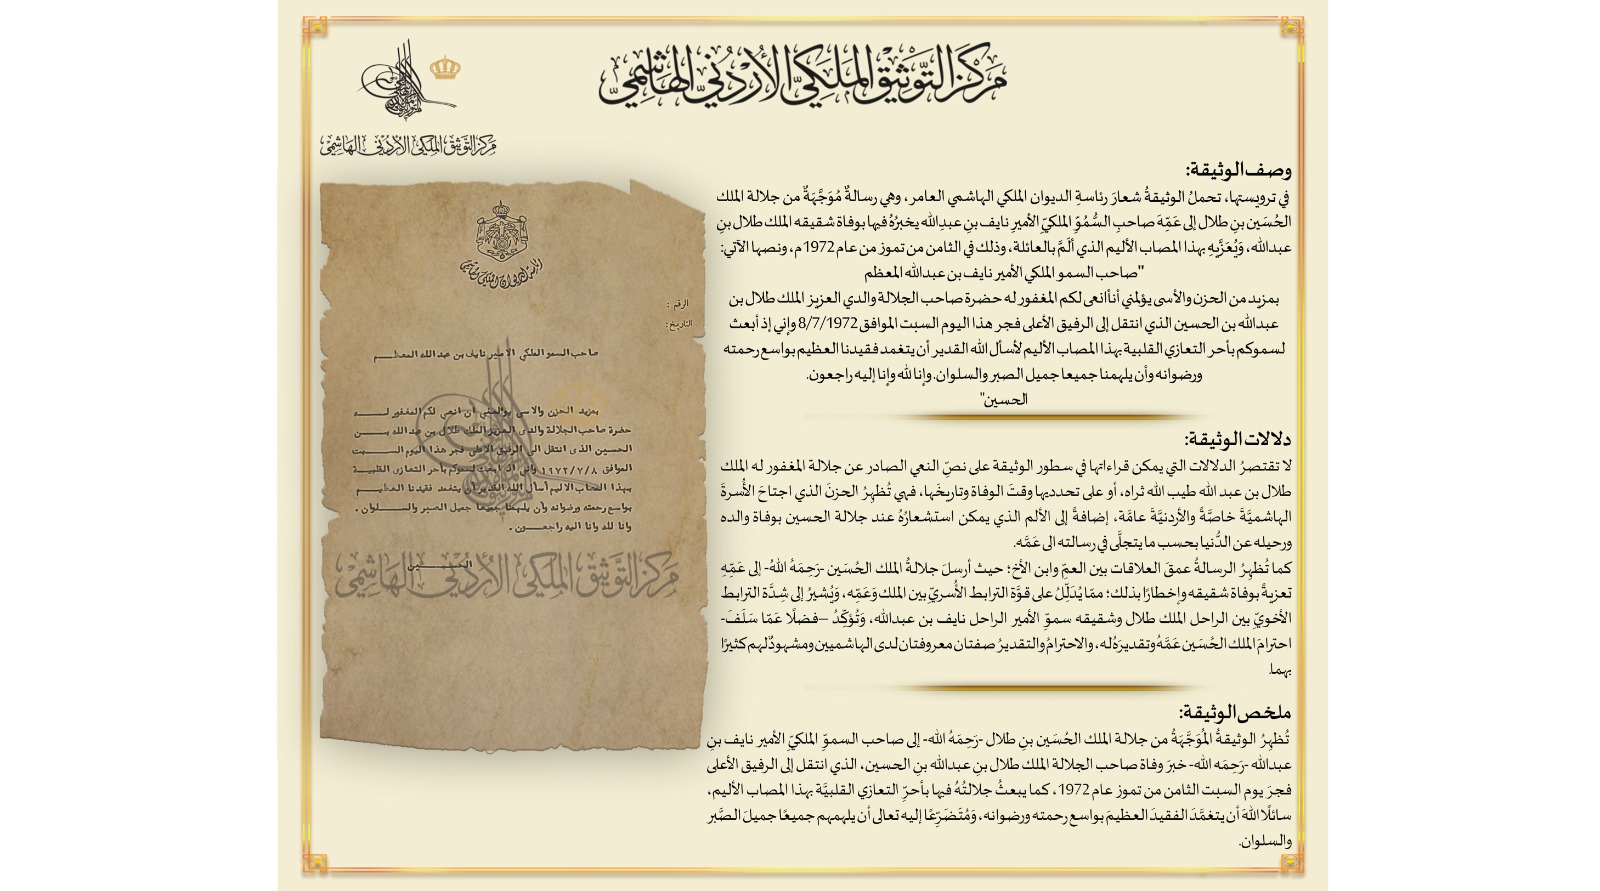 مَركَز التَّوثيق المَلَكيّ الأُرْدُنيّ الهَاشِميّ
مَركَز التَّوثيق المَلَكيّ الأُرْدُنيّ الهَاشِميّ
وصف الوثيقة:
في ترويستها، تحملُ الوثيقةُ شعارَ رئاسةِ الديوان الملكي الهاشمي العامر، وهي رسالةٌ مُوَجَّهَةٌ من جلالة الملك
الحُسَين بنِ طلال إلى عَمِّهَ صاحبِ السُّمُوّ الملكيّ الأميرِ نايف بنِ عبدِالله يخبرُهُ فيها بوفاة شقيقه الملك طلال بنِ
عبدالله، وَيُعَزِّيهِ بهذا المصاب الأليم الذي ألَمَّ بالعائلة، وذلك في الثامن من تموز من عام 1972 م، ونصها الآتي:
"صاحب السمو الملكي الأمير نايف بن عبدالله المعظم
بمزيد من الحزن والأسى يؤلمني أنأأنعى لكم المغفور له حضرة صاحب الجلالة والدي العزيز الملك طلال بن
عبدالله بن الحسين الذي انتقل إلى الرفيق الأعلى فجر هذا اليوم السبت الموافق 8/7/1972 وإني إذ أبعث
لسموكم بأحر التعازي القلبية بهذا المصاب الأليم لأسأل الله القدير أن يتغمد فقيدنا العظيم بواسع رحمته
ورضوانه وأن يلهمنا جميعا جميل الصبر والسلوان. وإنا لله وإنا إليه راجعون.
الحسين"
دلالات الوثيقة:
لا تقتصرُ الدلالات التي يمكن قراءاتها في سطور الوثيقة على نصّ النعي الصادر عن جلالة المغفور له الملك
طلال بن عبد الله طيب الله ثراه، أو على تحدديها وقتَ الوفاة وتاريخَها، فهي تُظهِرُ الحزنَ الذي اجتاحَ الأُسرةَ
الهاشميَّةَ خاصَّةً والأردنيَّةَ عامَّة، إضافةً إلى الألم الذي يمكن استشعارُهُ عند جلالة الحسين بوفاة والده
ورحيله عن الدُّنيا بحسب ما يتجلَّى في رسالته الى عَمِّه.
كما تُظهِرُ الرسالةُ عمقَ العلاقات بين العمّ وابن الأخ؛ حيث أرسلَ جلالةُ الملك الحُسَين -رَحِمَهُ اللهُ- إلى عَمِّهِ
تعزيةً بوفاة شقيقه وإخطارًا بذلك؛ ممّا يُدَلِّلُ على قوَّة الترابط الأُسريّ بين الملك وَعَمِّه، وَيُشيرُ إلى شِدَّة الترابط
الأخويّ بين الراحل الملك طلال وشقيقه سموّ الأمير الراحل نايف بن عبدالله، وَتُؤكِّدُ –فضلًا عَمّا سَلَفَ-
احترامَ الملك الحُسَين عَمَّهُ وتقديرَهُ له، والاحترامُ والتقديرُ صفتان معروفتان لدى الهاشميين ومشهودٌ لهم كثيرًا
بهما.
ملخص الوثيقة:
تُظهِرُ الوثيقةُ المُوَجَّهَةُ من جلالة الملك الحُسَين بنِ طلال -رَحِمَهُ الله- إلى صاحب السموّ الملكيّ الأمير نايف بنِ
عبدالله -رَحِمَه الله- خبرَ وفاة صاحب الجلالة الملك طلال بنِ عبدالله بنِ الحسين، الذي انتقل إلى الرفيق الأعلى
فجرَ يوم السبت الثامن من تموز عام 1972، كما يبعثُ جلالتُهُ فيها بأحرّ التعازي القلبيَّة بهذا المصاب الأليم،
سائلًا اللهَ أن يتغمَّدَ الفقيدَ العظيمَ بواسع رحمته ورضوانه، وَمُتَضَرِّعًا إليه تعالى أن يلهمهم جميعًا جميلَ الصَّبر
والسلوان.
رئاسة الديوان الملكي الهاشمي
الرقم :
التاريخ :
صاحب السمو الملكي الامير نايف بن عبد الله المعظم
بمزيد الحزن والاسى يؤلمني ان انعى لكم المغفور له
حضرة صاحب الجلالة والدى العزيز الملك طلال بن عبدالله بن
الحسين الذى انتقل الى الرفيق الاعلى فجر هذا اليوم السبت
الموافق ١٩٧٢/٧/٨ واني اذ ابعث لسموكم بأحر التعازى القلبية
بهذا المصاب الاليم أسأل الله القدير أن يتغمد فقيدنا العظيم
بواسع رحمته ورضوانه وأن يلهمنا جميعا جميل الصبر والسلوان .
وانا لله وانا اليه راجعون .
الحسين
مَركَز التَّوثيق المَلَكيّ الأُرْدُنيّ الهَاشِميّ